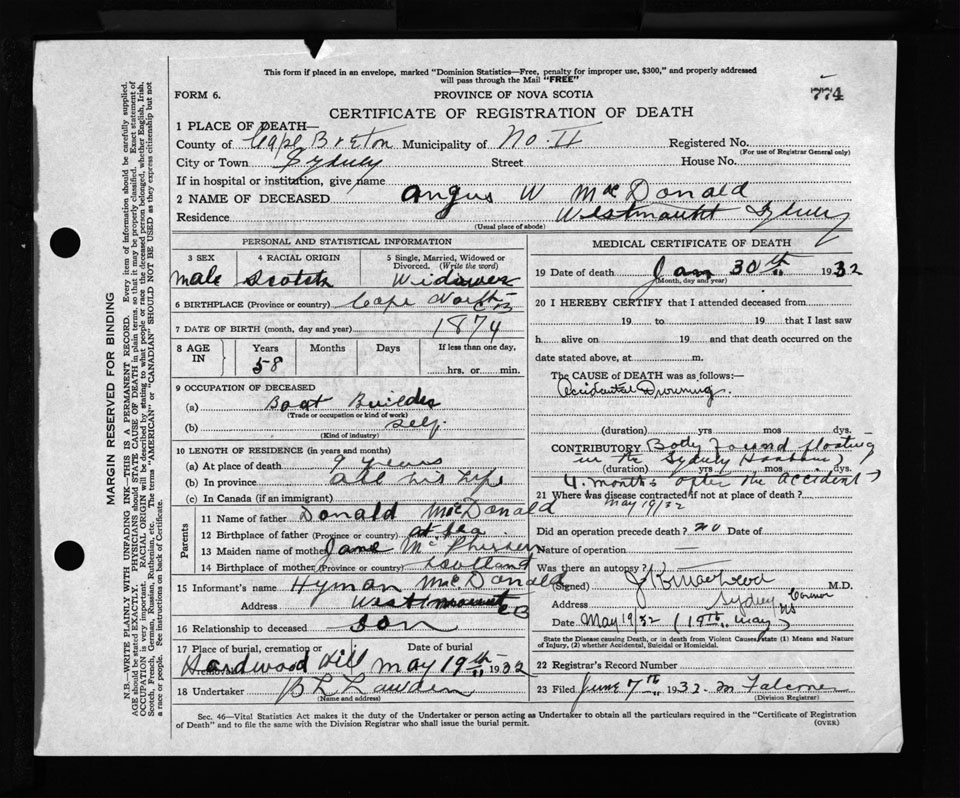 This form if placed in an envelope, marked "Dominion Statistics—Free, penalty for improper use, $300," and properly addressed
will pass through the Mail "FREE"
FORM 6.
PROVINCE OF NOVA SCOTIA
774
CERTIFICATE OF REGISTRATION OF DEATH
1 PLACE OF DEATH—
County of Cape Breton Municipality of No. II Registered No.
(For use of Registrar General only)
City or Town Sydney Street House No.
If in hospital or institution, give name
2 NAME OF DECEASED Angus W MacDonald
Residence Westmount Sydney
(Usual place of abode)
PERSONAL AND STATISTICAL INFORMATION
3 SEX
male
4 RACIAL ORIGIN
Scotch
5 Single, Married, Widowed or
Divorced. (Write the word)
Widower
6 BIRTHPLACE (Province or country) Cape North
C B
7 DATE OF BIRTH (month, day and year) 1874
8 AGE
IN
Years
58
Months
Days
If less than one day,
hrs. or min.
9 OCCUPATION OF DECEASED
(a) Boat Builder
(Trade or occupation or kind of work)
(b) self.
(Kind of industry)
10 LENGTH OF RESIDENCE (in years and months)
(a) At place of death 9 years
(b) In province all his life
(c) In Canada (if an immigrant)
Parents
11 Name of father Donald MacDonald
12 Birthplace of father (Province or country) at sea
13 Maiden name of mother Jane McPherson
14 Birthplace of mother (Province or country) Scotland
15 Informant's name Hyman MacDonald
Address Westmount CB
16 Relationship to deceased son
17 Place of burial, cremation or
removal Hardwood Hill
Date of burial
May 19th 1932
18 Undertaker B L
(Name and address)
MEDICAL CERTIFICATE OF DEATH
19 Date of death Jan 30th 1932
(Month, day and year)
20 I HEREBY CERTIFY that I attended deceased from
19 to 19 that I last saw
h alive on 19 and that death occurred on the
date stated above, at m.
The CAUSE of DEATH was as follows:—
Accidental Drowning.
(duration) yrs mos dys.
CONTRIBUTORY Body Found floating
in the Sydney Harbour
(duration) yrs mos dys.
4 months after the accident
21 Where was disease contracted if not at place of death?
May 19/32
Did an operation precede death? no
Nature of operation —
Was there an autopsy?
(Signed) M.D.
Coroner
Address Sydney NS
Date May 19/32 (19th May)
State the Disease causing Death, or in death from Violent Causes, state (1) Means and Nature
of Injury, (2) whether Accidental, Suicidal or Homicidal.
22 Registrar's Record Number
23 Filed June 7th 1932 M Falconer
(Division Registrar)
Sec. 46—Vital Statistics Act makes it the duty of the Undertaker or person acting as Undertaker to obtain all the particulars required in the "Certificate of Registration
of Death" and to file the same with the Division Registrar who shall issue the burial permit.
(OVER)
MARGIN RESERVED FOR BINDING
N.B.—WRITE PLAINLY WITH UNFADING INK—THIS IS A PERMANENT RECORD. Every item of information should be carefully supplied.
AGE should be stated EXACTLY. PHYSICIANS should STATE CAUSE OF DEATH in plain terms, so that it may be properly classified. Exact statement of
OCCUPATION is very important. RACIAL ORIGIN will be described by stating to what people or race the deceased person belonged, whether English, Irish,
Scotch, French, German, Russian, Ruthenian, etc. The terms "AMERICAN" or "CANADIAN" SHOULD NOT BE USED as they express citizenship but not
a race or people. See instructions on back of Certificate.